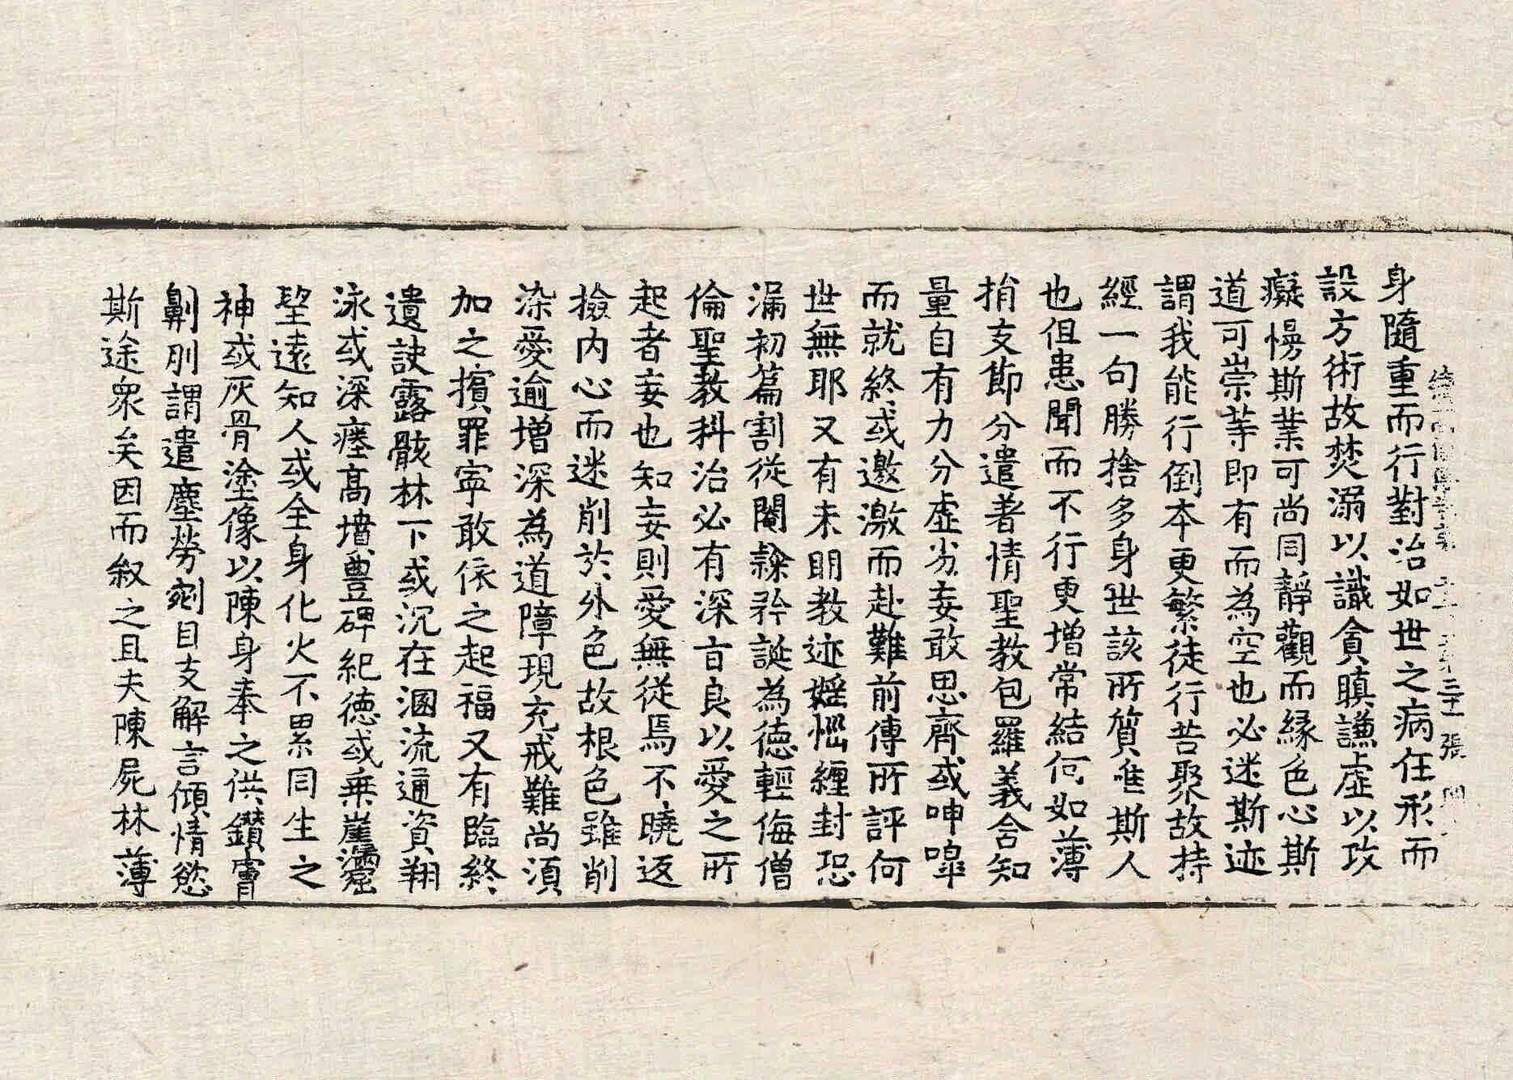 身隨重而行對治如世之病任形而
設方術故焚溺以識貪瞋謙虛以攻
癡慢斯業可尚同靜觀而緣色心斯
道可崇等即有而為空也必迷斯迹
謂我能行倒本更繁徒行苦聚故持
經一句勝捨多身世該所質唯斯人
也但患聞而不行更增常結何如薄
捎支節分遣著情聖教包羅義含知
量自有力分虛劣妄敢思齊或呻嘷
而就終或邀激而赴難前傳所評何
世無耶又有未明教迹婬惱纏封恐
漏初篇割從閹隸矜誕為德輕侮僧
倫聖教科治必有深旨良以愛之所
起者妄也知妄則愛無從焉不曉返
撿内心而迷削於外色故根色雖削
染愛逾增深為道障現充戒難尚須
加之擯罪寧敢依之起福又有臨終
遺訣露骸林下或沉在溷流通資翔
泳或深瘞高墳豊碑紀德或乗崖窟
望遠知人或全身化火不累同生之
神或灰骨塗像以陳身奉之供鑽膚
劓刖謂遣塵勞剜目支解言傾情慾
斯途眾矣因而叙之且夫陳屍林薄